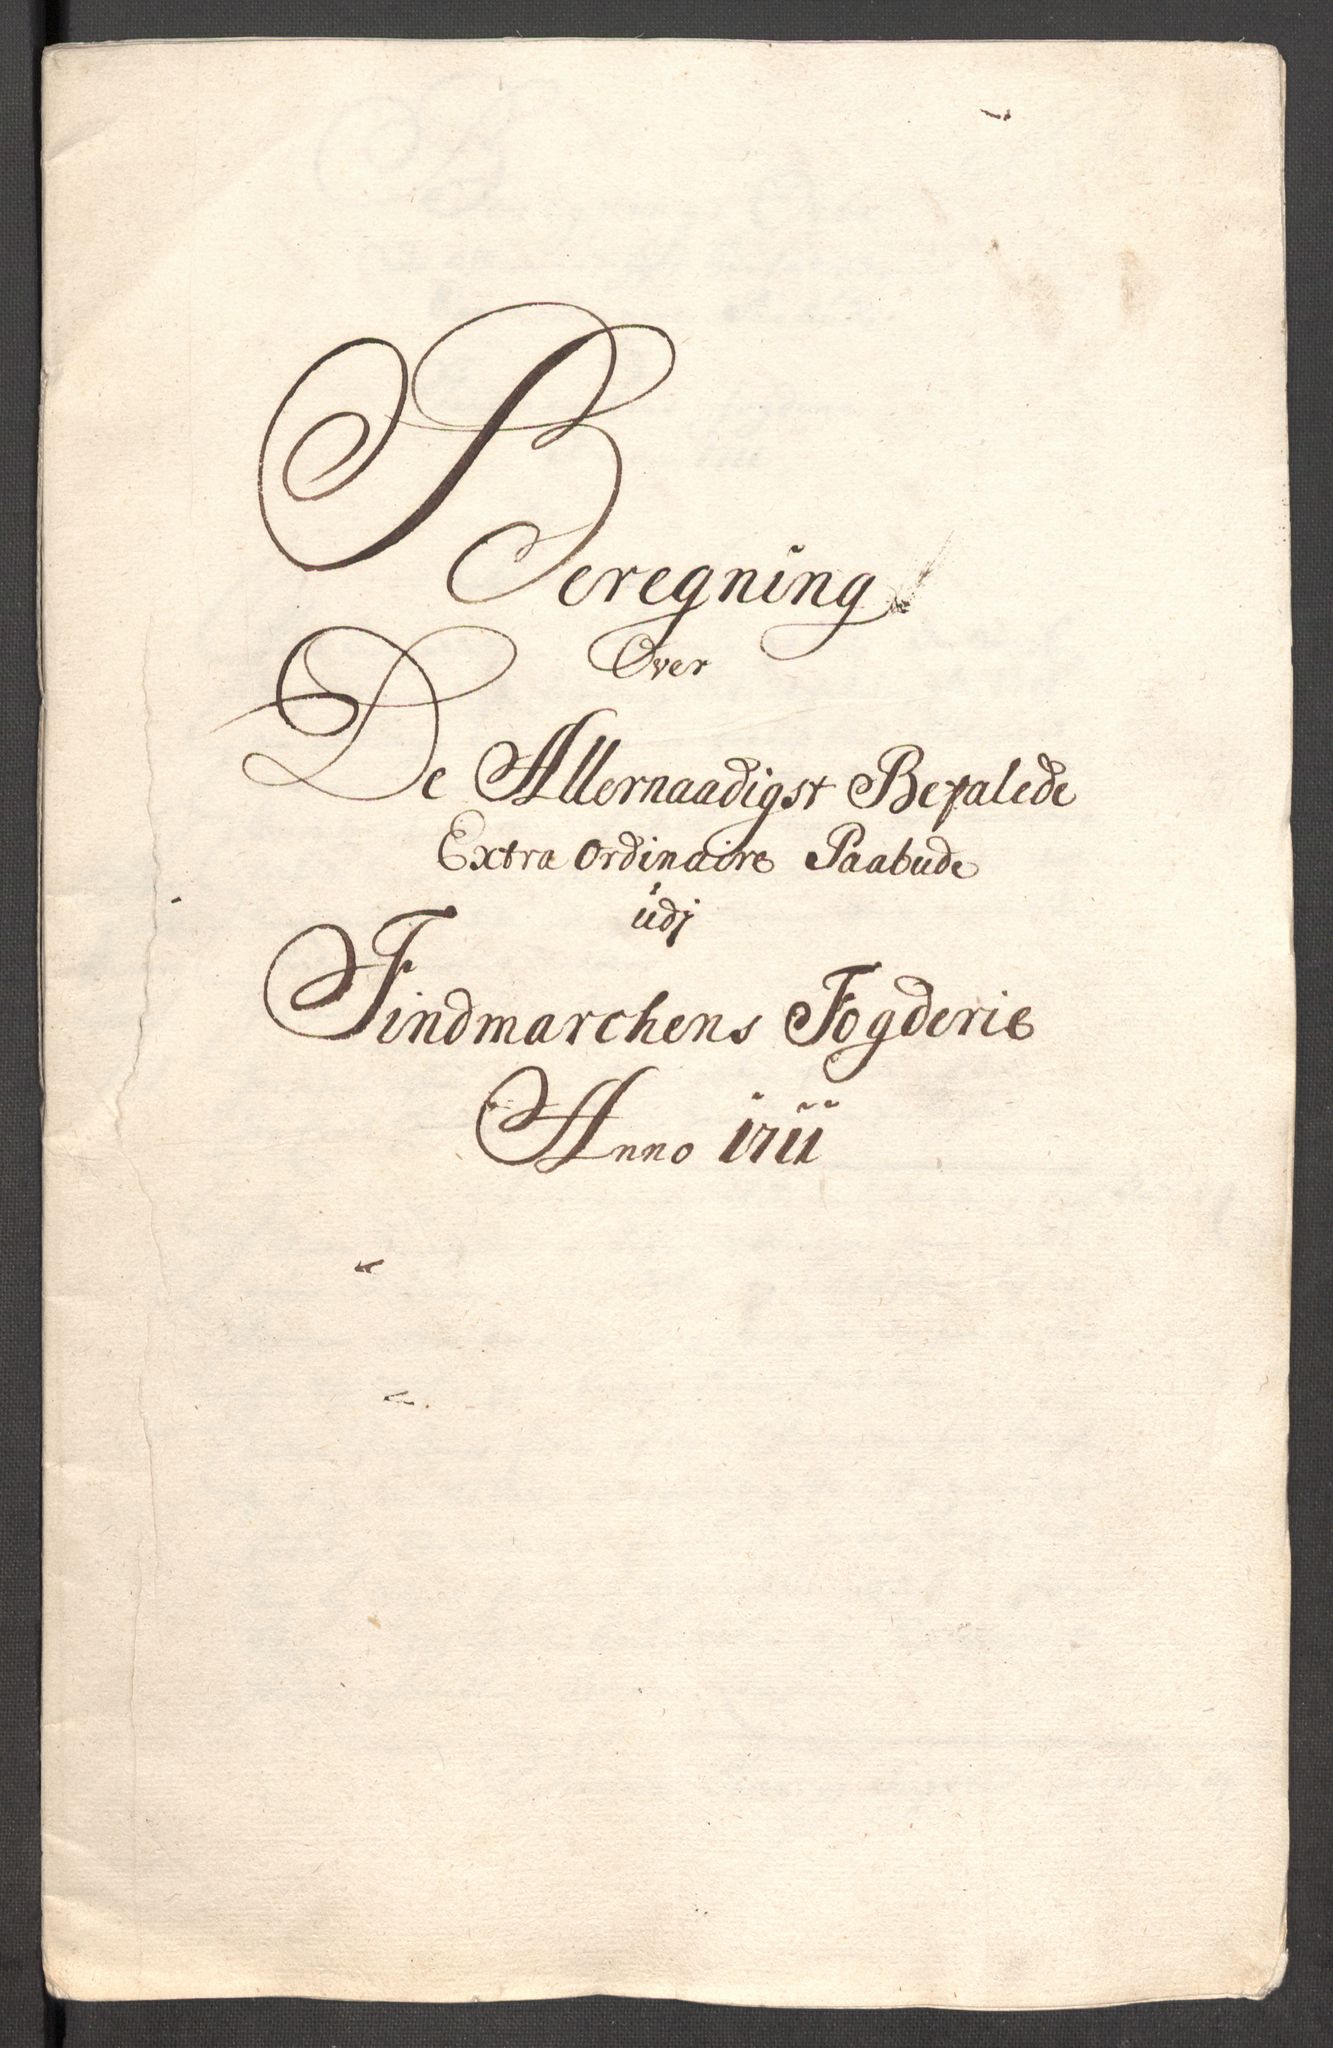 Beregning
Over
De Allernaadigst Bepalede
Extra Ordinaire Paabude
udj
Findmarchens Fogderie
Anno 1711